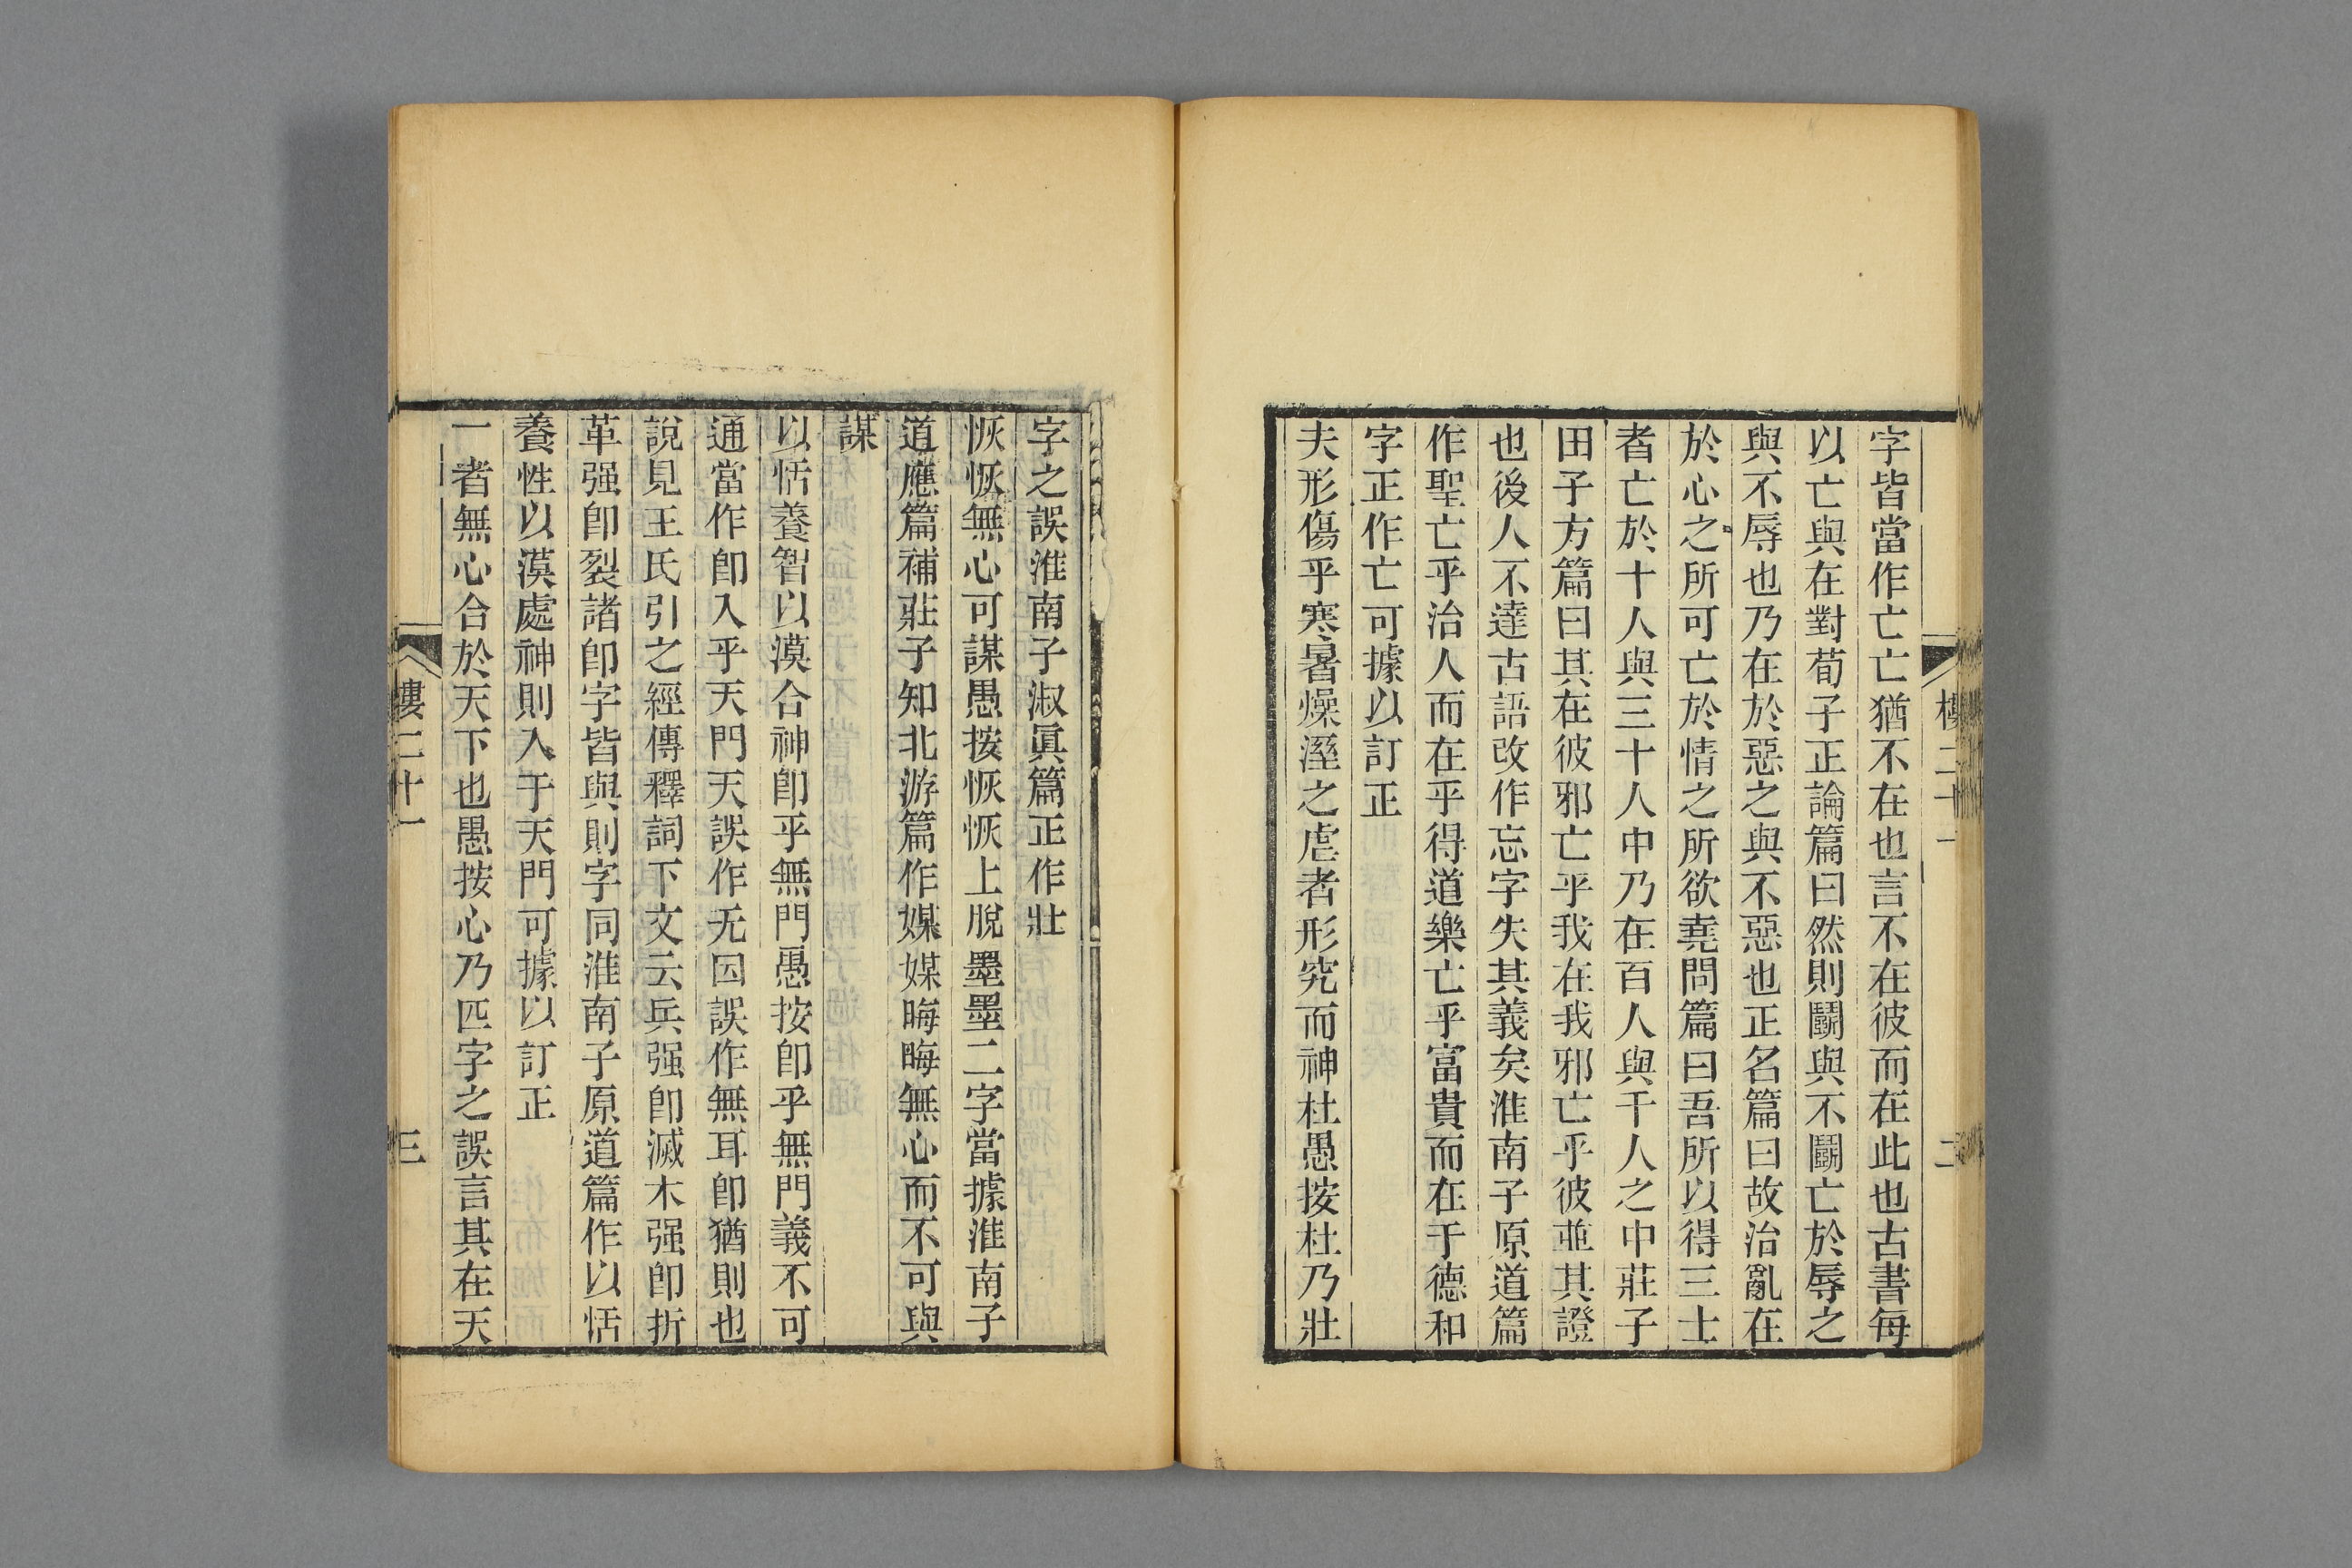 樓二十一
二
字皆當作亡亡猶不在也言不在彼而在此也古書每
以亡與在對荀子正論篇曰然則鬭與不鬭亡於辱之
與不辱也乃在於惡之與不惡也正名篇曰故治亂在
於心之所可亡於情之所欲堯問篇曰吾所以得三士
者亡於十人與三十人中乃在百人與千人之中莊子
田子方篇曰其在彼邪亡乎我在我邪亡乎彼並其證
也後人不達古語改作忘字失其義矣淮南子原道篇
作聖亡乎治人而在乎得道樂亡乎富貴而在于德和
字正作亡可據以訂正
夫形傷乎寒暑燥溼之虐者形究而神杜愚按杜乃壯
字之誤淮南子淑眞篇正作壯
恢恢無心可謀愚按恢恢上脫墨墨二字當據淮南子
道應篇補莊子知北游篇作媒媒晦晦無心而不可與
謀
以恬養智以漠合神卽乎無門愚按卽乎無門義不可
通當作卽入乎天門天誤作无因誤作無耳卽猶則也
說見王氏引之經傳釋詞下文云兵强卽滅木强卽折
革强卽裂諸卽字皆與則字同淮南子原道篇作以恬
養性以漠處神則入于天門可據以訂正
一者無心合於天下也愚按心乃匹字之誤言其在天
樓二十一
三